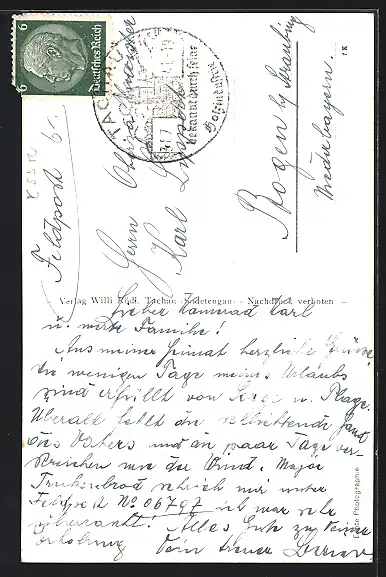 6 Deutsches Reich 6
TACHAU
bekannt durch seine
Holzindustrie
Feldpost 6.
Herrn Oberwachtmeister
Karl
Bogen b/ Straubing
Niederbayern.
Verlag Willi Rödl, Tachau (Sudetengau) - Nachdruck verboten -
Lieber Kamerad Karl
u. werte Familie!
Aus meiner Heimat herzliche Grüsse,
die wenigen Tage meines Urlaubs
sind erfüllt von Sorge u. Plage.
Überall fehlt die
des Vaters und ein paar Tage ver-
streichen wie der Wind. Major
schrieb mir unter
Feldpost No 06797 ich war sehr
überrascht! Alles Gute zu Deiner
Erholung Dein treuer
Echte Photographie